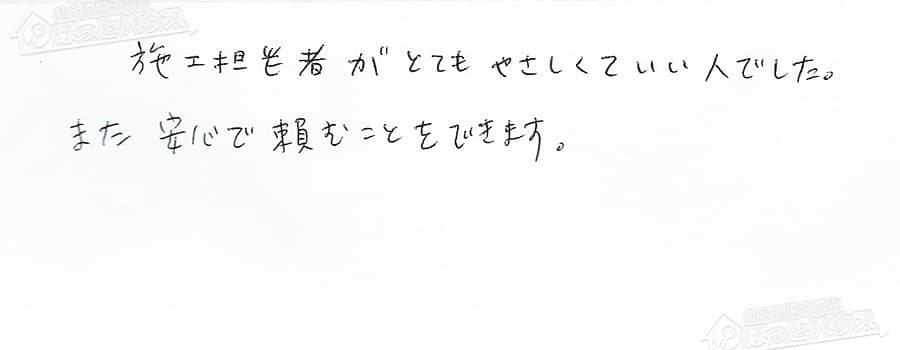 施工担当者がとてもやさしくていい人でした。
また安心で頼むことをできます。
ほっとハウス
ほっとハウス